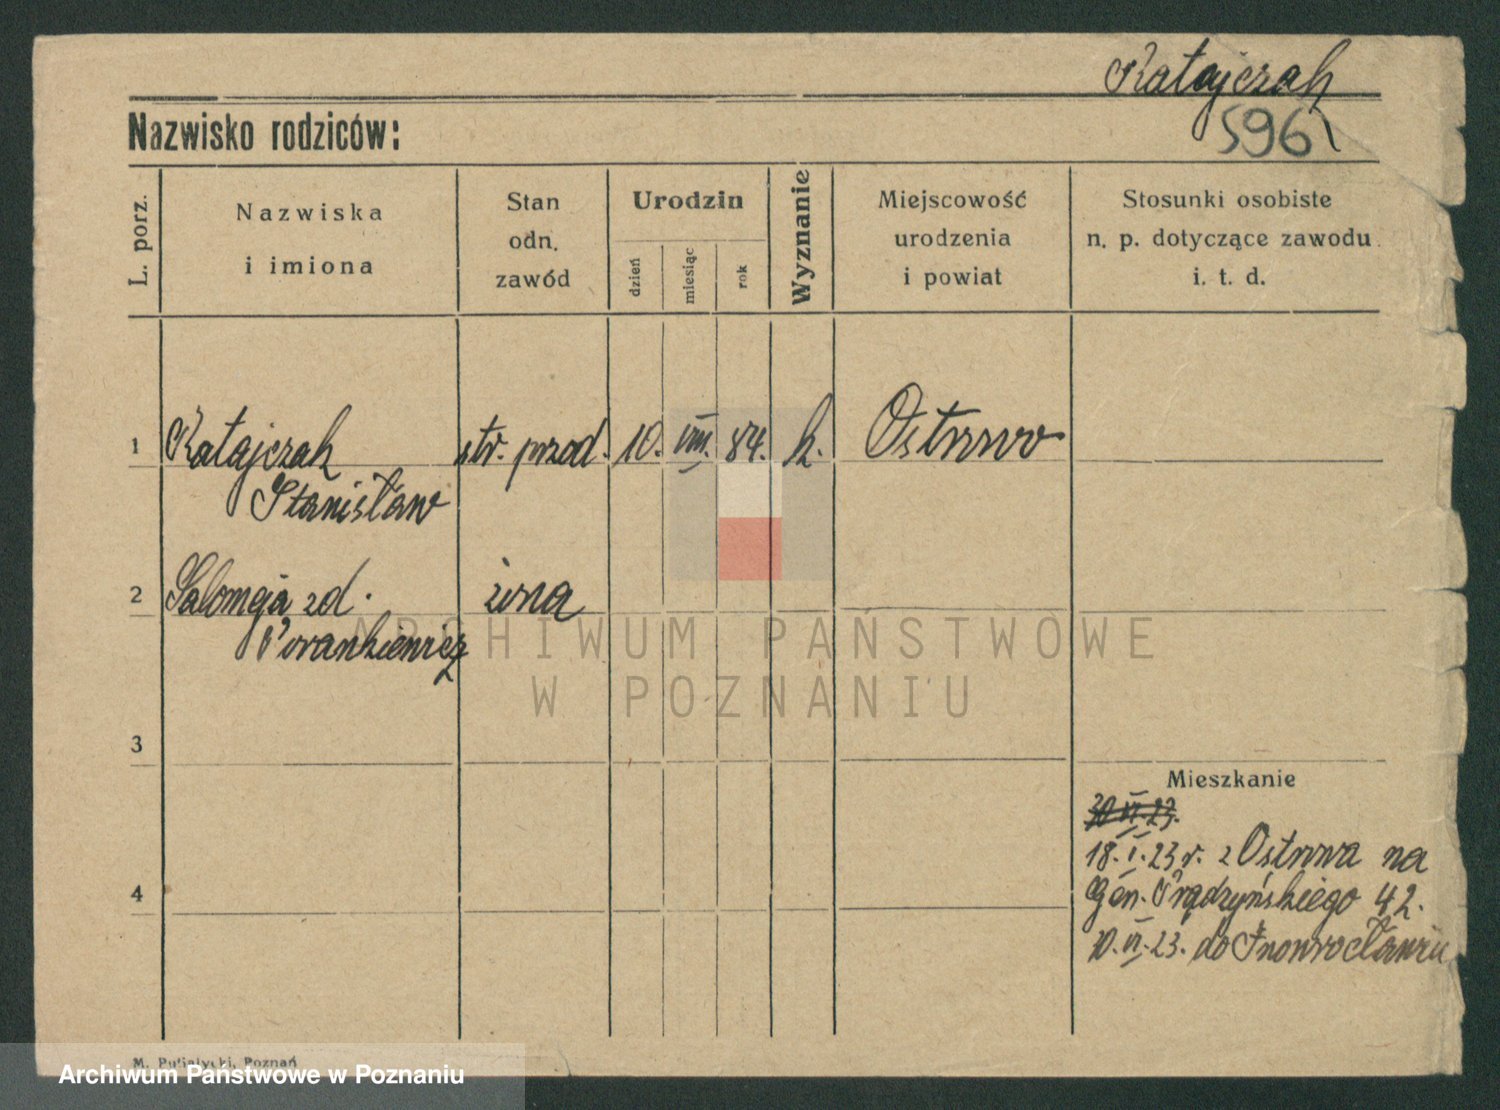 Ratajczak
596
Nazwisko rodziców:
L. porz.
Nazwiska
i imiona
Stan
odn.
zawód
Urodzin
dzień
miesiąc
rok
Wyznanie
Miejscowość
urodzenia
i powiat
Stosunki osobiste
n. p. dotyczące zawodu
i. t. d.
1 Ratajczak str. przod. 10. VIII. 84. k. Ostrowo
Stanisław
2 Salomeja zd. żona
ARCHIWUM PAŃSTWOWE
W POZNANIU
3
Mieszkanie
30 VI 23.
18. V. 23 r. z Ostrowa na
4
Gen. Prądzyńskiego 42.
10. VI. 23. do Inowrocławia
M. Putiatycki, Poznań
Archiwum Państwowe w Poznaniu